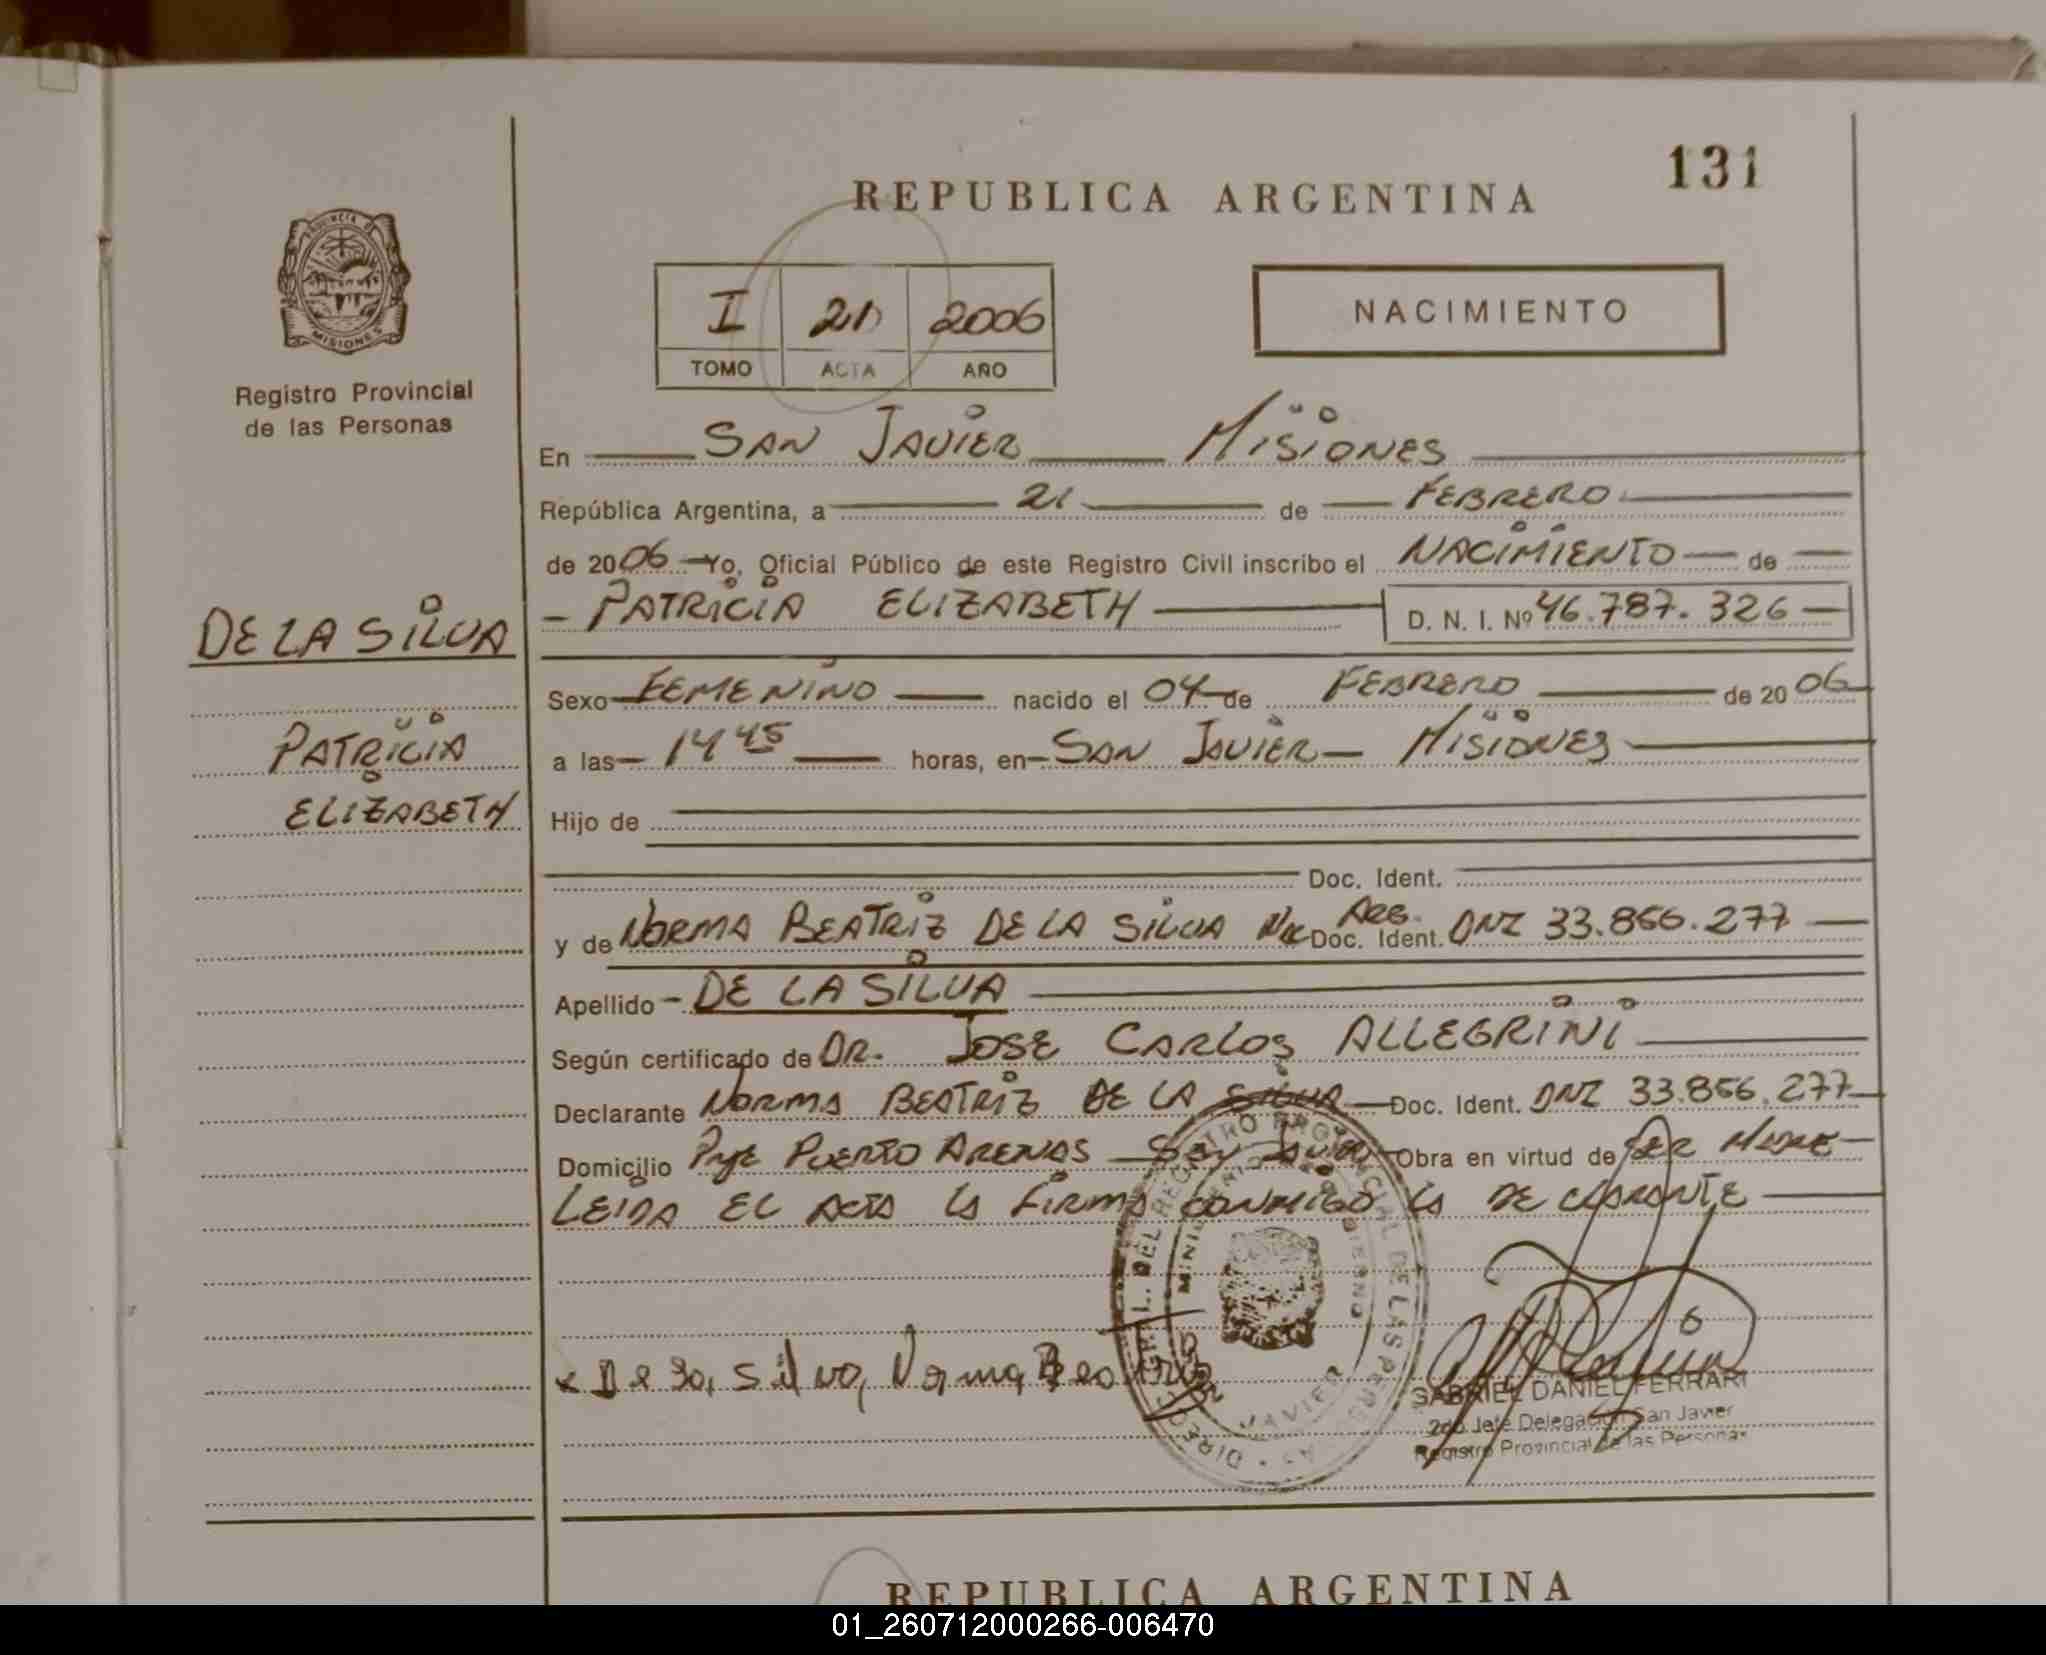 131
REPUBLICA ARGENTINA
PROVINCIA D
MISIONES
Registro Provincial
de las Personas
I 2006
TOMO ACTA AÑO
NACIMIENTO
En SAN JAVIER MISIONES
República Argentina, a 21 de FEBRERO
de 2006 Yo, Oficial Público de este Registro Civil inscribo el NACIMIENTO de
PATRICIA ELIZABETH D. N. I. Nº 46.787.326
DE LA SILVA
Sexo FEMENINO nacido el 04 de FEBRERO de 2006
PATRICIA
a las 14 45 horas, en SAN JAVIER MISIONES
ELIZABETH
Hijo de
Doc. Ident.
y de NORMA BEATRIZ DE LA SILVA Nac Arg. Doc. Ident. DNI 33.856.277
Apellido DE LA SILVA
Según certificado de DR. JOSE CARLOS ALLEGRINI
Declarante NORMA BEATRIZ DE LA SILVA Doc. Ident. DNI 33.856.277
Domicilio PUERTO ARENAS San Javier Obra en virtud de SER MADRE
LEIDA EL ACTA LA FIRMA CONMIGO LA DECLARANTE
x De la, silva, Norma Beatriz
JAVIER
GABRIEL DANIEL FERRARI
2do Jefe Delegación San Javier
Registro Provincial de las Personas
REPUBLICA ARGENTINA
01_260712000266-006470